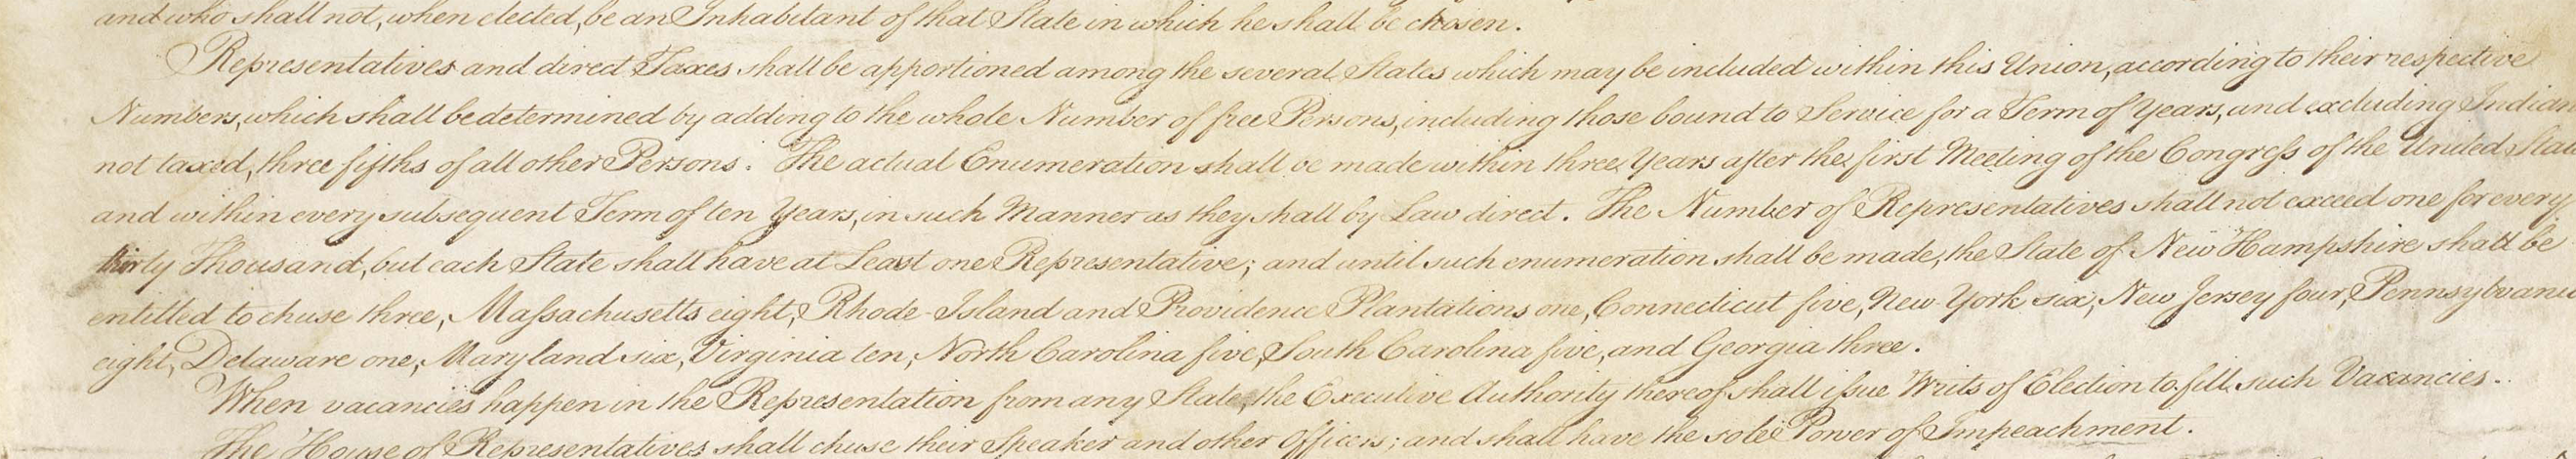 and who shall not, when elected, be an Inhabitant of that State in which he shall be chosen.
Representatives and direct Taxes shall be apportioned among the several States which may be included within this Union, according to their respective
Numbers, which shall be determined by adding to the whole Number of free Persons, including those bound to Service for a Term of Years, and excluding Indian
not taxed, three fifths of all other Persons. The actual Enumeration shall be made within three Years after the first Meeting of the Congress of the United Stat
and within every subsequent Term of ten Years, in such Manner as they shall by Law direct. The Number of Representatives shall not exceed one for every
thirty Thousand, but each State shall have at Least one Representative; and until such enumeration shall be made, the State of New Hampshire shall be
entitled to chuse three, Massachusetts eight, Rhode-Island and Providence Plantations one, Connecticut five, New-York six, New Jersey four, Pennsylvania
eight, Delaware one, Maryland six, Virginia ten, North Carolina five, South Carolina five, and Georgia three.
When vacancies happen in the Representation from any State, the Executive Authority thereof shall issue Writs of Election to fill such Vacancies.
The House of Representatives shall chuse their Speaker and other Officers; and shall have the sole Power of Impeachment.